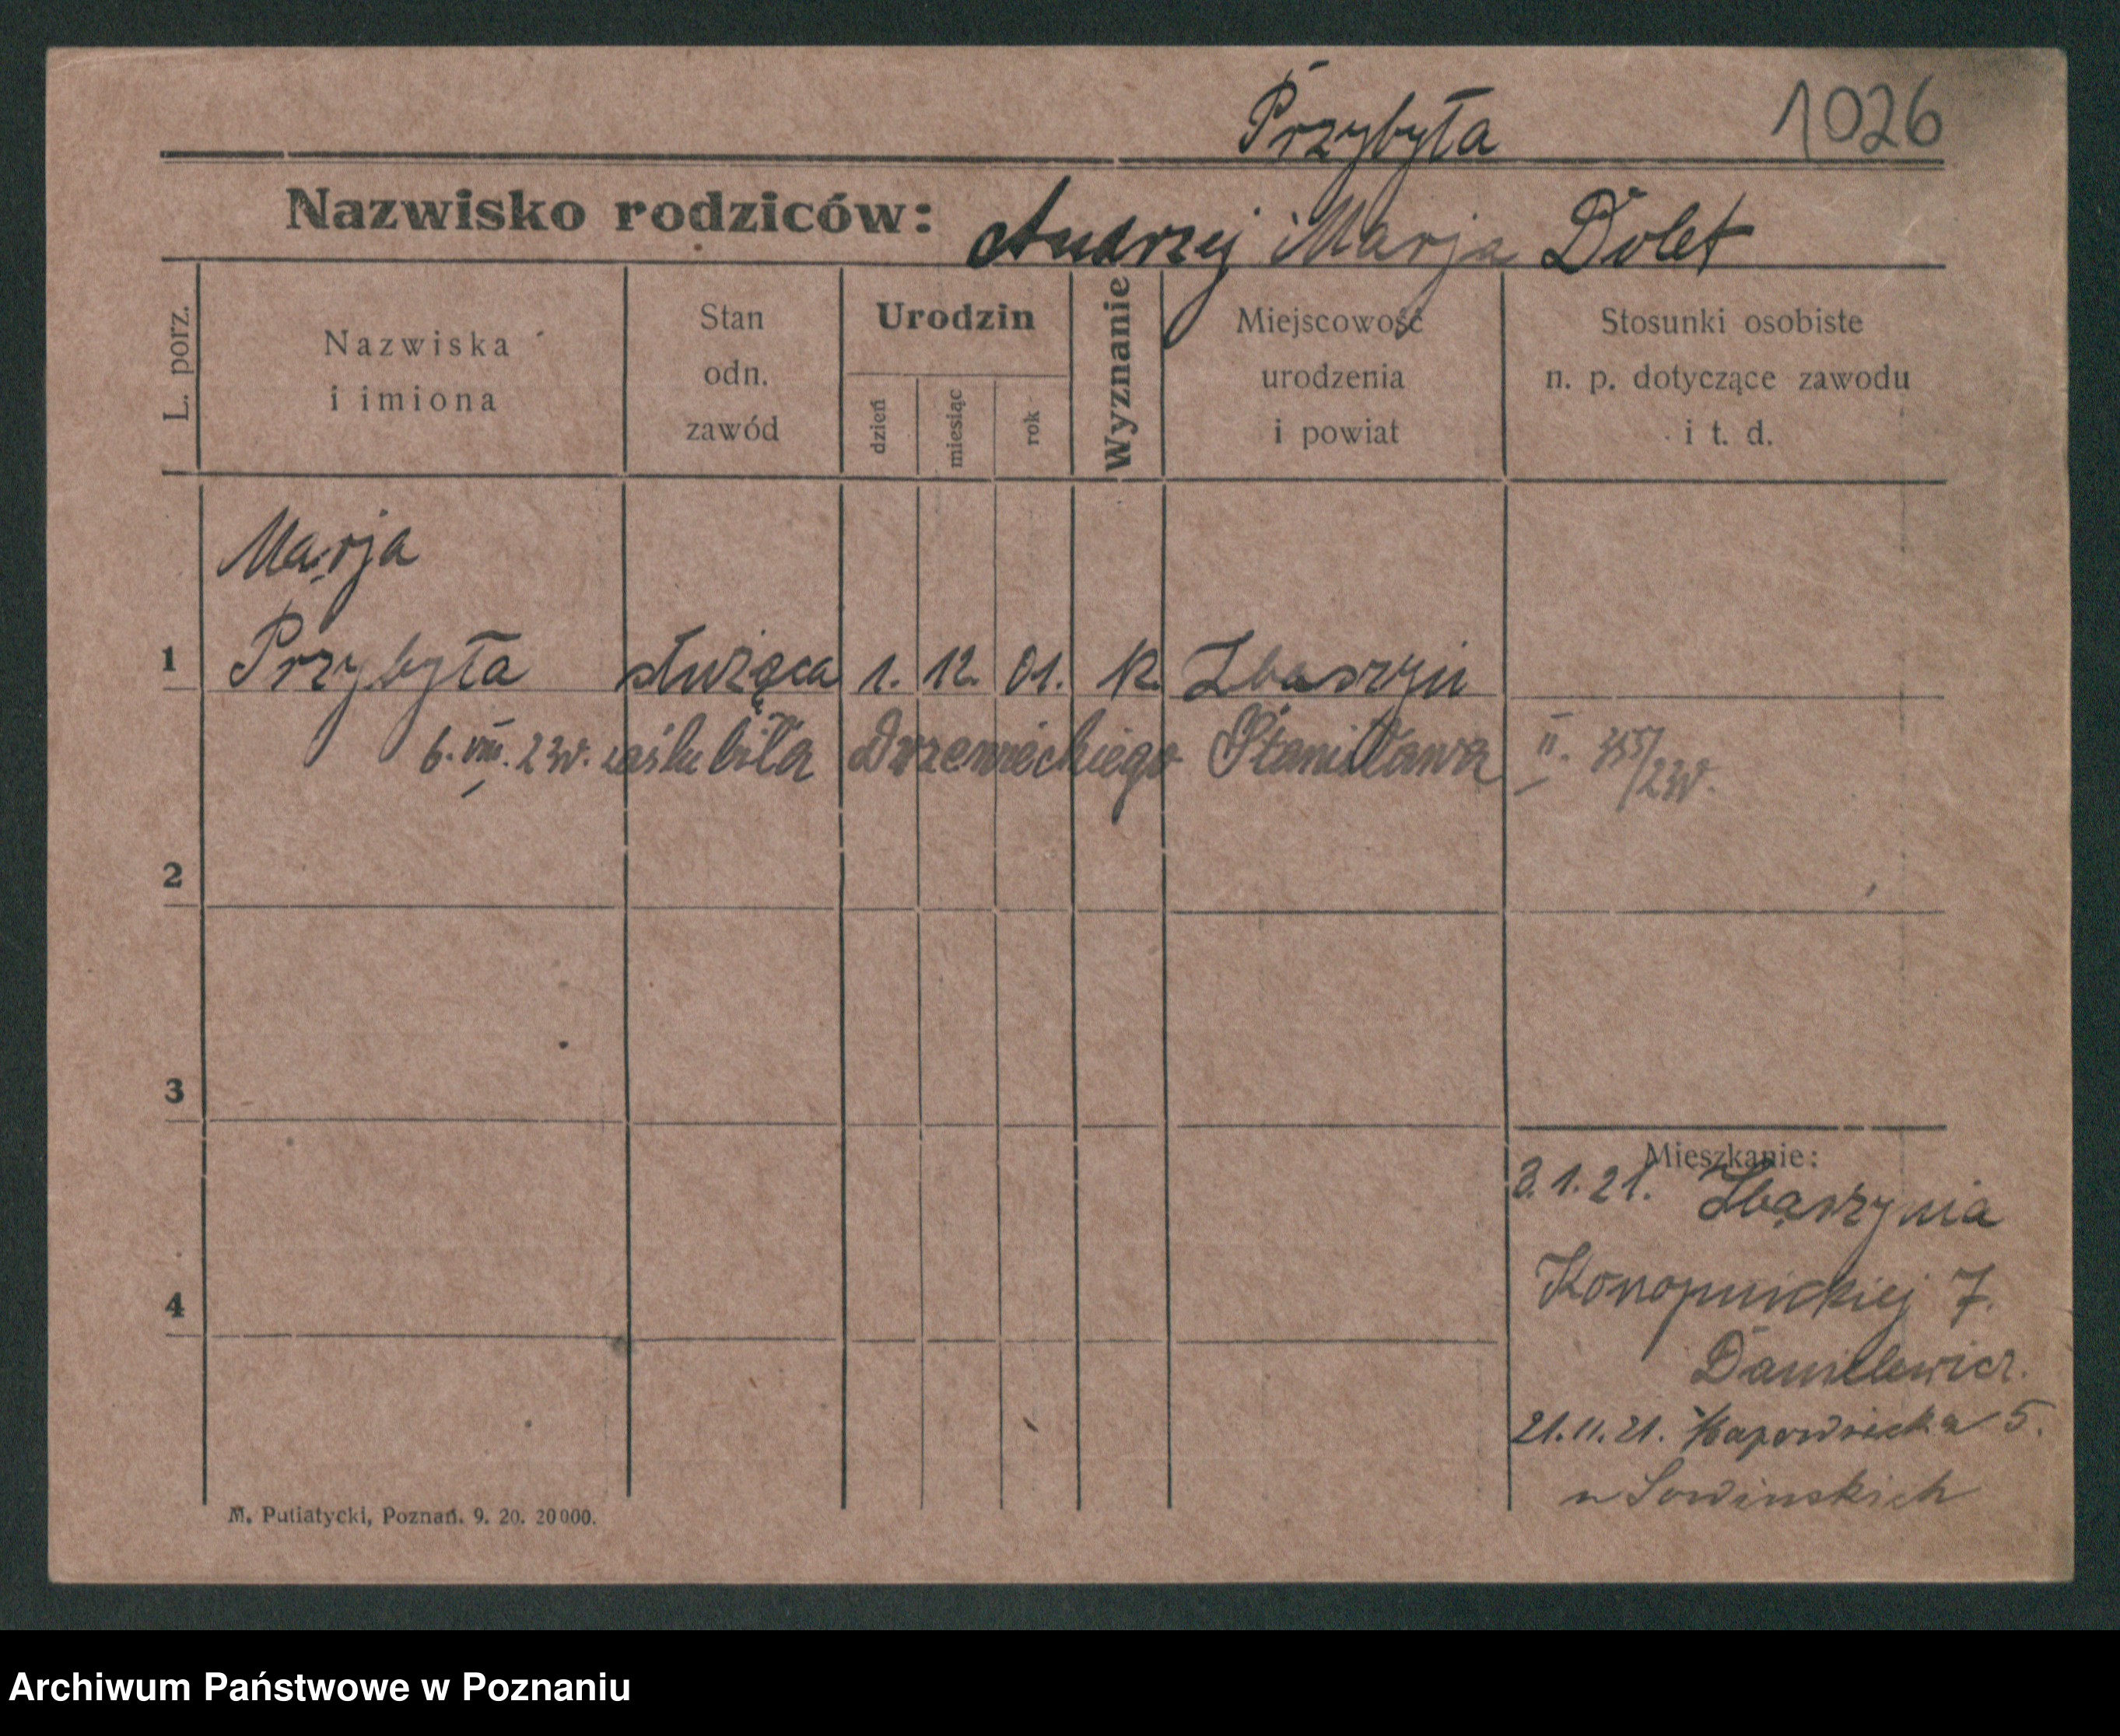 Przybyła 1026
Nazwisko rodziców: Andrzej i Marja Dolet
L. porz.
Nazwiska
i imiona
Stan
odn.
zawód
Urodzin
dzień
miesiąc
rok
Wyznanie
Miejscowość
urodzenia
i powiat
Stosunki osobiste
n. p. dotyczące zawodu
i t. d.
Marja
1 Przybyła służąca 1. 12. 01. K. Zbaszyń
6. VIII. 23r. zaślubiła Drzewieckiego Stanisława II. 355/23r.
2
3
Mieszkanie:
3.1.21. Zbąszynia
Konopnickiej 7.
4
Danielewicz.
21.11.21. 5.
u Sowinskich
M. Putiatycki, Poznań. 9. 20. 20000.
Archiwum Państwowe w Poznaniu